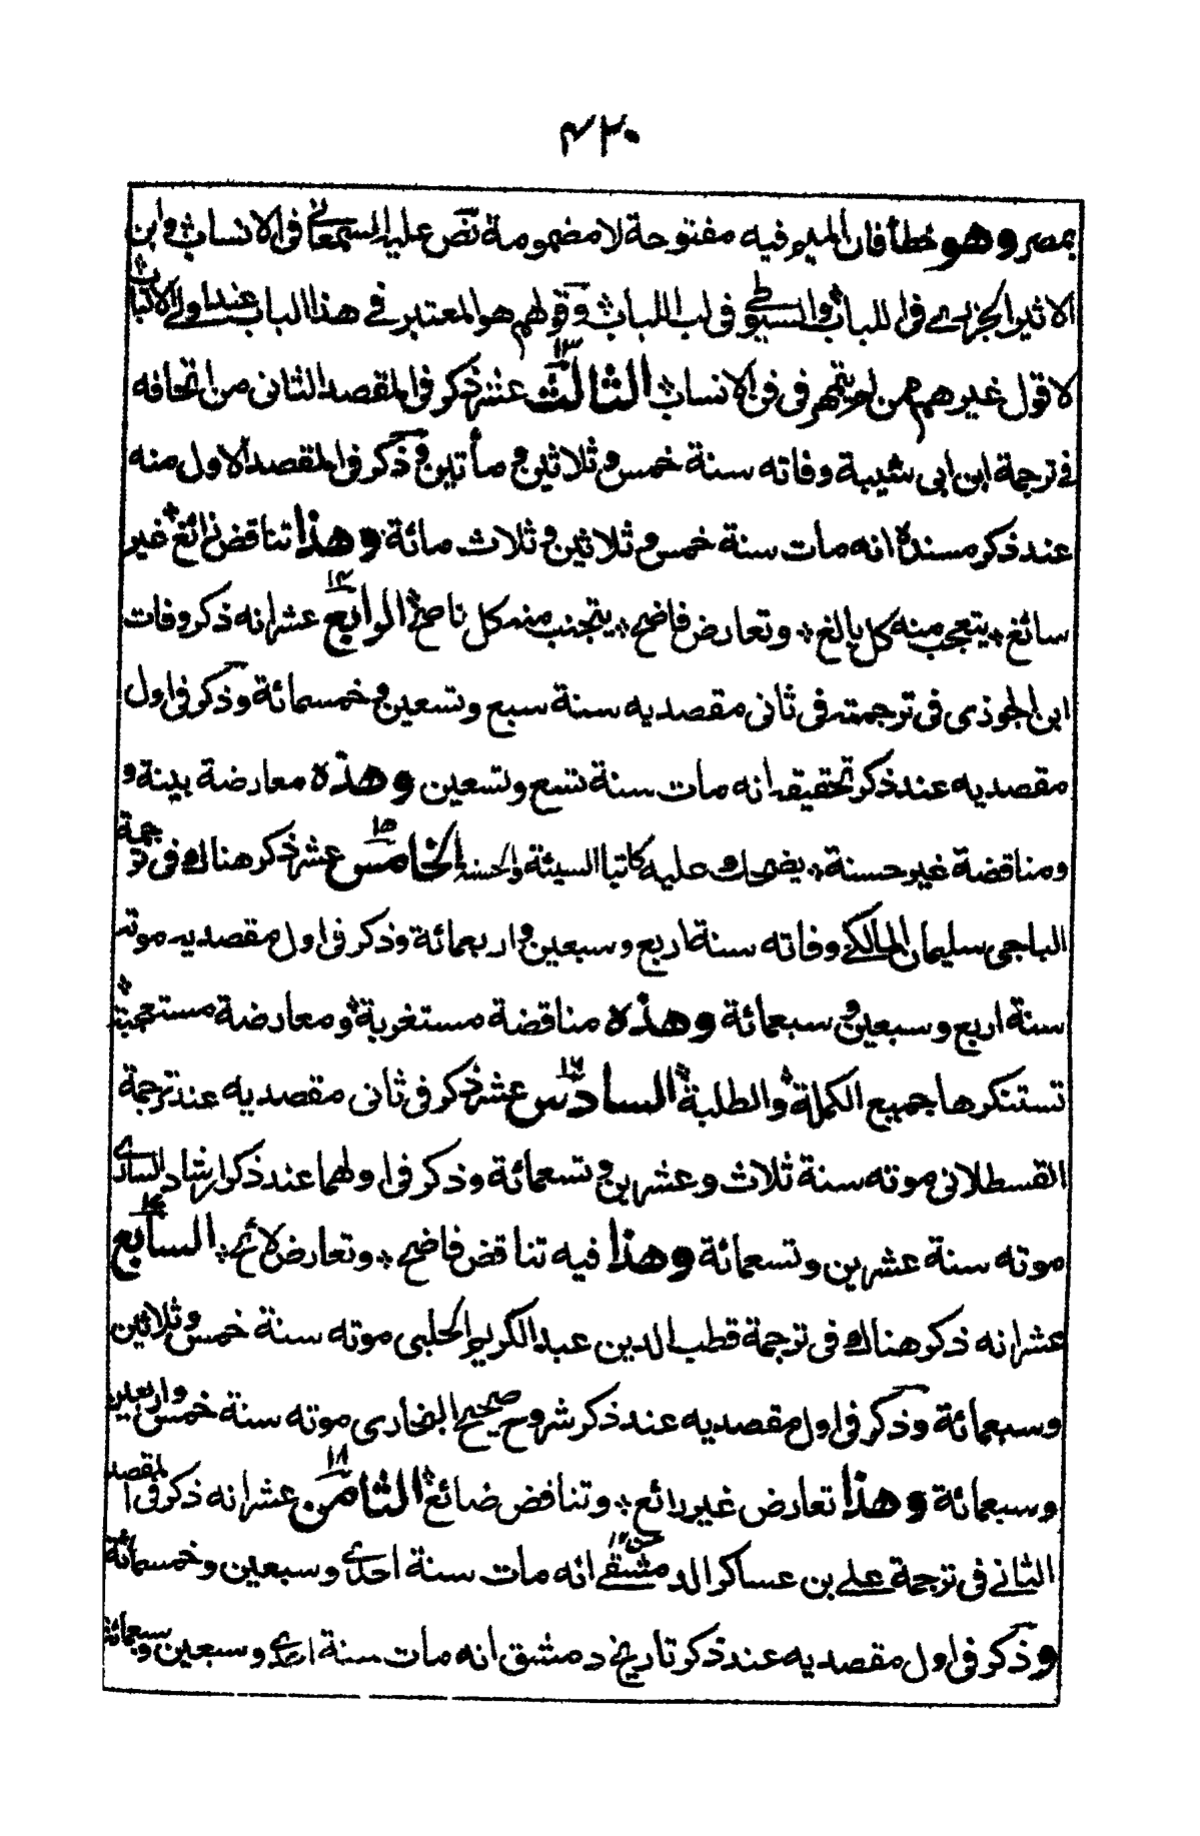 ۴۲۰
بمصر وهو خطأ فان الميم فيه مفتوحة لا مضمومة نص عليه السمعاني في الانساب وابن
الاثير الجزري في اللباب والسيوطي في لب اللباب وقولهم هو المعتبر في هذا الباب عند اولي الالباب
لا قول غيرهم ممن لم يتمهر في فن الانساب الثالث عشر ذكر في المقصد الثاني من اتحافه
في ترجمة ابن ابي شيبة وفاته سنة خمس وثلاثين ومأتين وذكر في المقصد الاول منه
عند ذكر مسنده انه مات سنة خمس وثلاثين وثلاث مائة وهذا تناقض زائغ غير
سائغ يتعجب منه كل بالغ وتعارض فاضح يتجنب منه كل ناصح الرابع عشر انه ذكر وفات
ابن الجوذى في ترجمته في ثاني مقصديه سنة سبع وتسعين وخمسمائة وذكر في اول
مقصديه عند ذكر تحقيقه انه مات سنة تسع وتسعين وهذه معارضة بينة و
ومناقضة غير حسنة يضحك عليه كاتبا السيئة والحسنة الخامس عشر ذكر هناك في ترجمة
الباجي سليمان المالكي وفاته سنة اربع وسبعين واربعمائة وذكر في اول مقصديه موته
سنة اربع وسبعين وسبعمائة وهذه مناقضة مستغربة ومعارضة مستعجبة
تستنكرها جميع الكملة والطلبة السادس عشر ذكر في ثاني مقصديه عند ترجمة
القسطلاني موته سنة ثلاث وعشرين وتسعمائة وذكر في اولهما عند ذكر ارشاد الساري
موته سنة عشرين وتسعمائة وهذا فيه تناقض فاضح وتعارض لائح السابع
عشر انه ذكر هناك في ترجمة قطب الدين عبد الكريم الحلبي موته سنة خمس وثلاثين
وسبعمائة وذكر في اول مقصديه عند ذكر شروح صحيح البخاري موته سنة خمس واربعين
وسبعمائة وهذا تعارض غير رائع وتناقض ضائع الثامن عشر انه ذكر في المقصد
الثاني في ترجمة علي بن عساكر الدمشقي انه مات سنة احدى وسبعين وخمسمائة
وذكر في اول مقصديه عند ذكر تاريخ دمشق انه مات سنة احدى وسبعين وسبعمائة